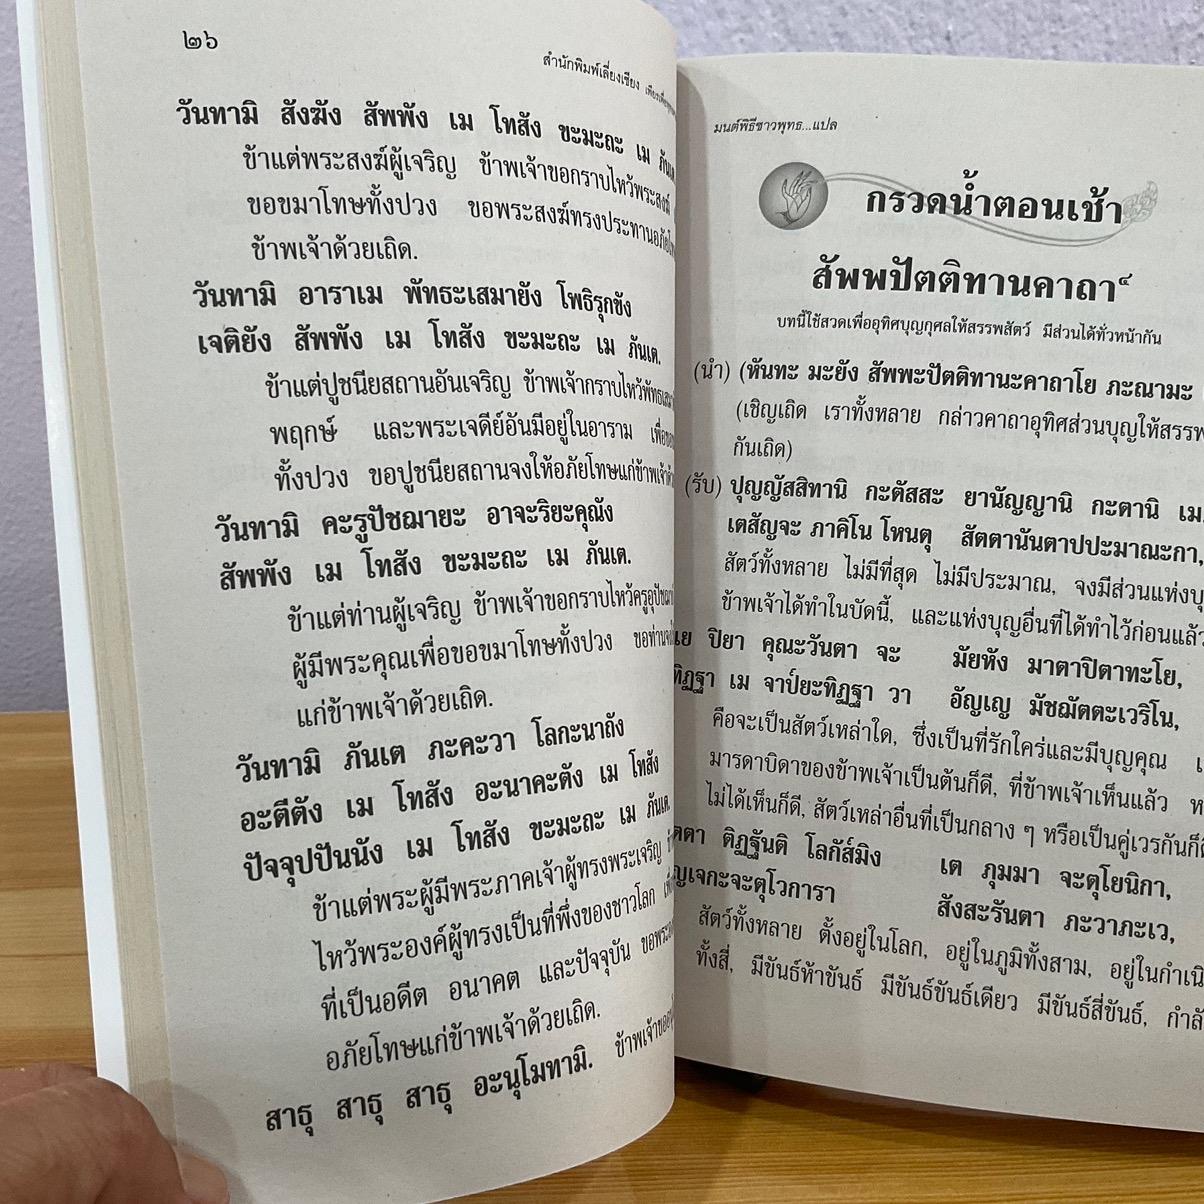 ๒๖
สำนักพิมพ์เลี่ยงเชียง
วันทามิ สังฆัง สัพพัง เม โทสัง ขะมะถะ เม ภันเต.
ข้าแต่พระสงฆ์ผู้เจริญ ข้าพเจ้าขอกราบไหว้พระสงฆ์
ขอขมาโทษทั้งปวง ขอพระสงฆ์ทรงประทานอภัยโทษ
ข้าพเจ้าด้วยเถิด.
วันทามิ อาราเม พัทธะเสมายัง โพธิรุกขัง
เจติยัง สัพพัง เม โทสัง ขะมะถะ เม ภันเต.
ข้าแต่ปูชนียสถานอันเจริญ ข้าพเจ้ากราบไหว้พัทธเสมา
พฤกษ์ และพระเจดีย์อันมีอยู่ในอาราม
ทั้งปวง ขอปูชนียสถานจงให้อภัยโทษแก่ข้าพเจ้า
วันทามิ คะรูปัชฌายะ อาจะริยะคุณัง
สัพพัง เม โทสัง ขะมะถะ เม ภันเต.
ข้าแต่ท่านผู้เจริญ ข้าพเจ้าขอกราบไหว้ครูอุปัชฌา
ผู้มีพระคุณเพื่อขอขมาโทษทั้งปวง ขอท่าน
แก่ข้าพเจ้าด้วยเถิด.
วันทามิ ภันเต ภะคะวา โลกะนาถัง
อะตีตัง เม โทสัง อะนาคะตัง เม โทสัง
ปัจจุปปันนัง เม โทสัง ขะมะถะ เม ภันเต.
ข้าแต่พระผู้มีพระภาคเจ้าผู้ทรงพระเจริญ
ไหว้พระองค์ผู้ทรงเป็นที่พึ่งของชาวโลก
ที่เป็นอดีต อนาคต และปัจจุบัน
อภัยโทษแก่ข้าพเจ้าด้วยเถิด.
สาธุ สาธุ สาธุ อะนุโมทามิ.
มนต์พิธีชาวพุทธ...แปล
กรวดน้ำตอนเช้า
สัพพปัตติทานคาถา๔
บทนี้ใช้สวดเพื่ออุทิศบุญกุศลให้สรรพสัตว์ มีส่วนได้ทั่วหน้ากัน
(นำ) (หันทะ มะยัง สัพพะปัตติทานะคาถาโย ภะณามะ
(เชิญเถิด เราทั้งหลาย กล่าวคาถาอุทิศส่วนบุญให้สรรพ
กันเถิด)
(รับ) ปุญญัสสิทานิ กะตัสสะ ยานัญญานิ กะตานิ เม,
เตสัญจะ ภาคิโน โหนตุ สัตตานันตาปปะมาณะกา,
สัตว์ทั้งหลาย ไม่มีที่สุด ไม่มีประมาณ, จงมีส่วนแห่งบุ
ข้าพเจ้าได้ทำในบัดนี้, และแห่งบุญอื่นที่ได้ทำไว้ก่อนแล้ว
เย ปิยา คุณะวันตา จะ มัยหัง มาตาปิตาทะโย,
ทิฏฐา เม จาป๎ยะทิฏฐา วา อัญเญ มัชฌัตตะเวริโน,
คือจะเป็นสัตว์เหล่าใด, ซึ่งเป็นที่รักใคร่และมีบุญคุณ เ
มารดาบิดาของข้าพเจ้าเป็นต้นก็ดี, ที่ข้าพเจ้าเห็นแล้ว ห
ไม่ได้เห็นก็ดี, สัตว์เหล่าอื่นที่เป็นกลาง ๆ หรือเป็นคู่เวรกันก็ดี
ตตา ติฏฐันติ โลกัส๎มิง เต ภุมมา จะตุโยนิกา,
ญเจกะจะตุโวการา สังสะรันตา ภะวาภะเว,
สัตว์ทั้งหลาย ตั้งอยู่ในโลก, อยู่ในภูมิทั้งสาม, อยู่ในกำเนิ
ทั้งสี่, มีขันธ์ห้าขันธ์ มีขันธ์ขันธ์เดียว มีขันธ์สี่ขันธ์, กำลั